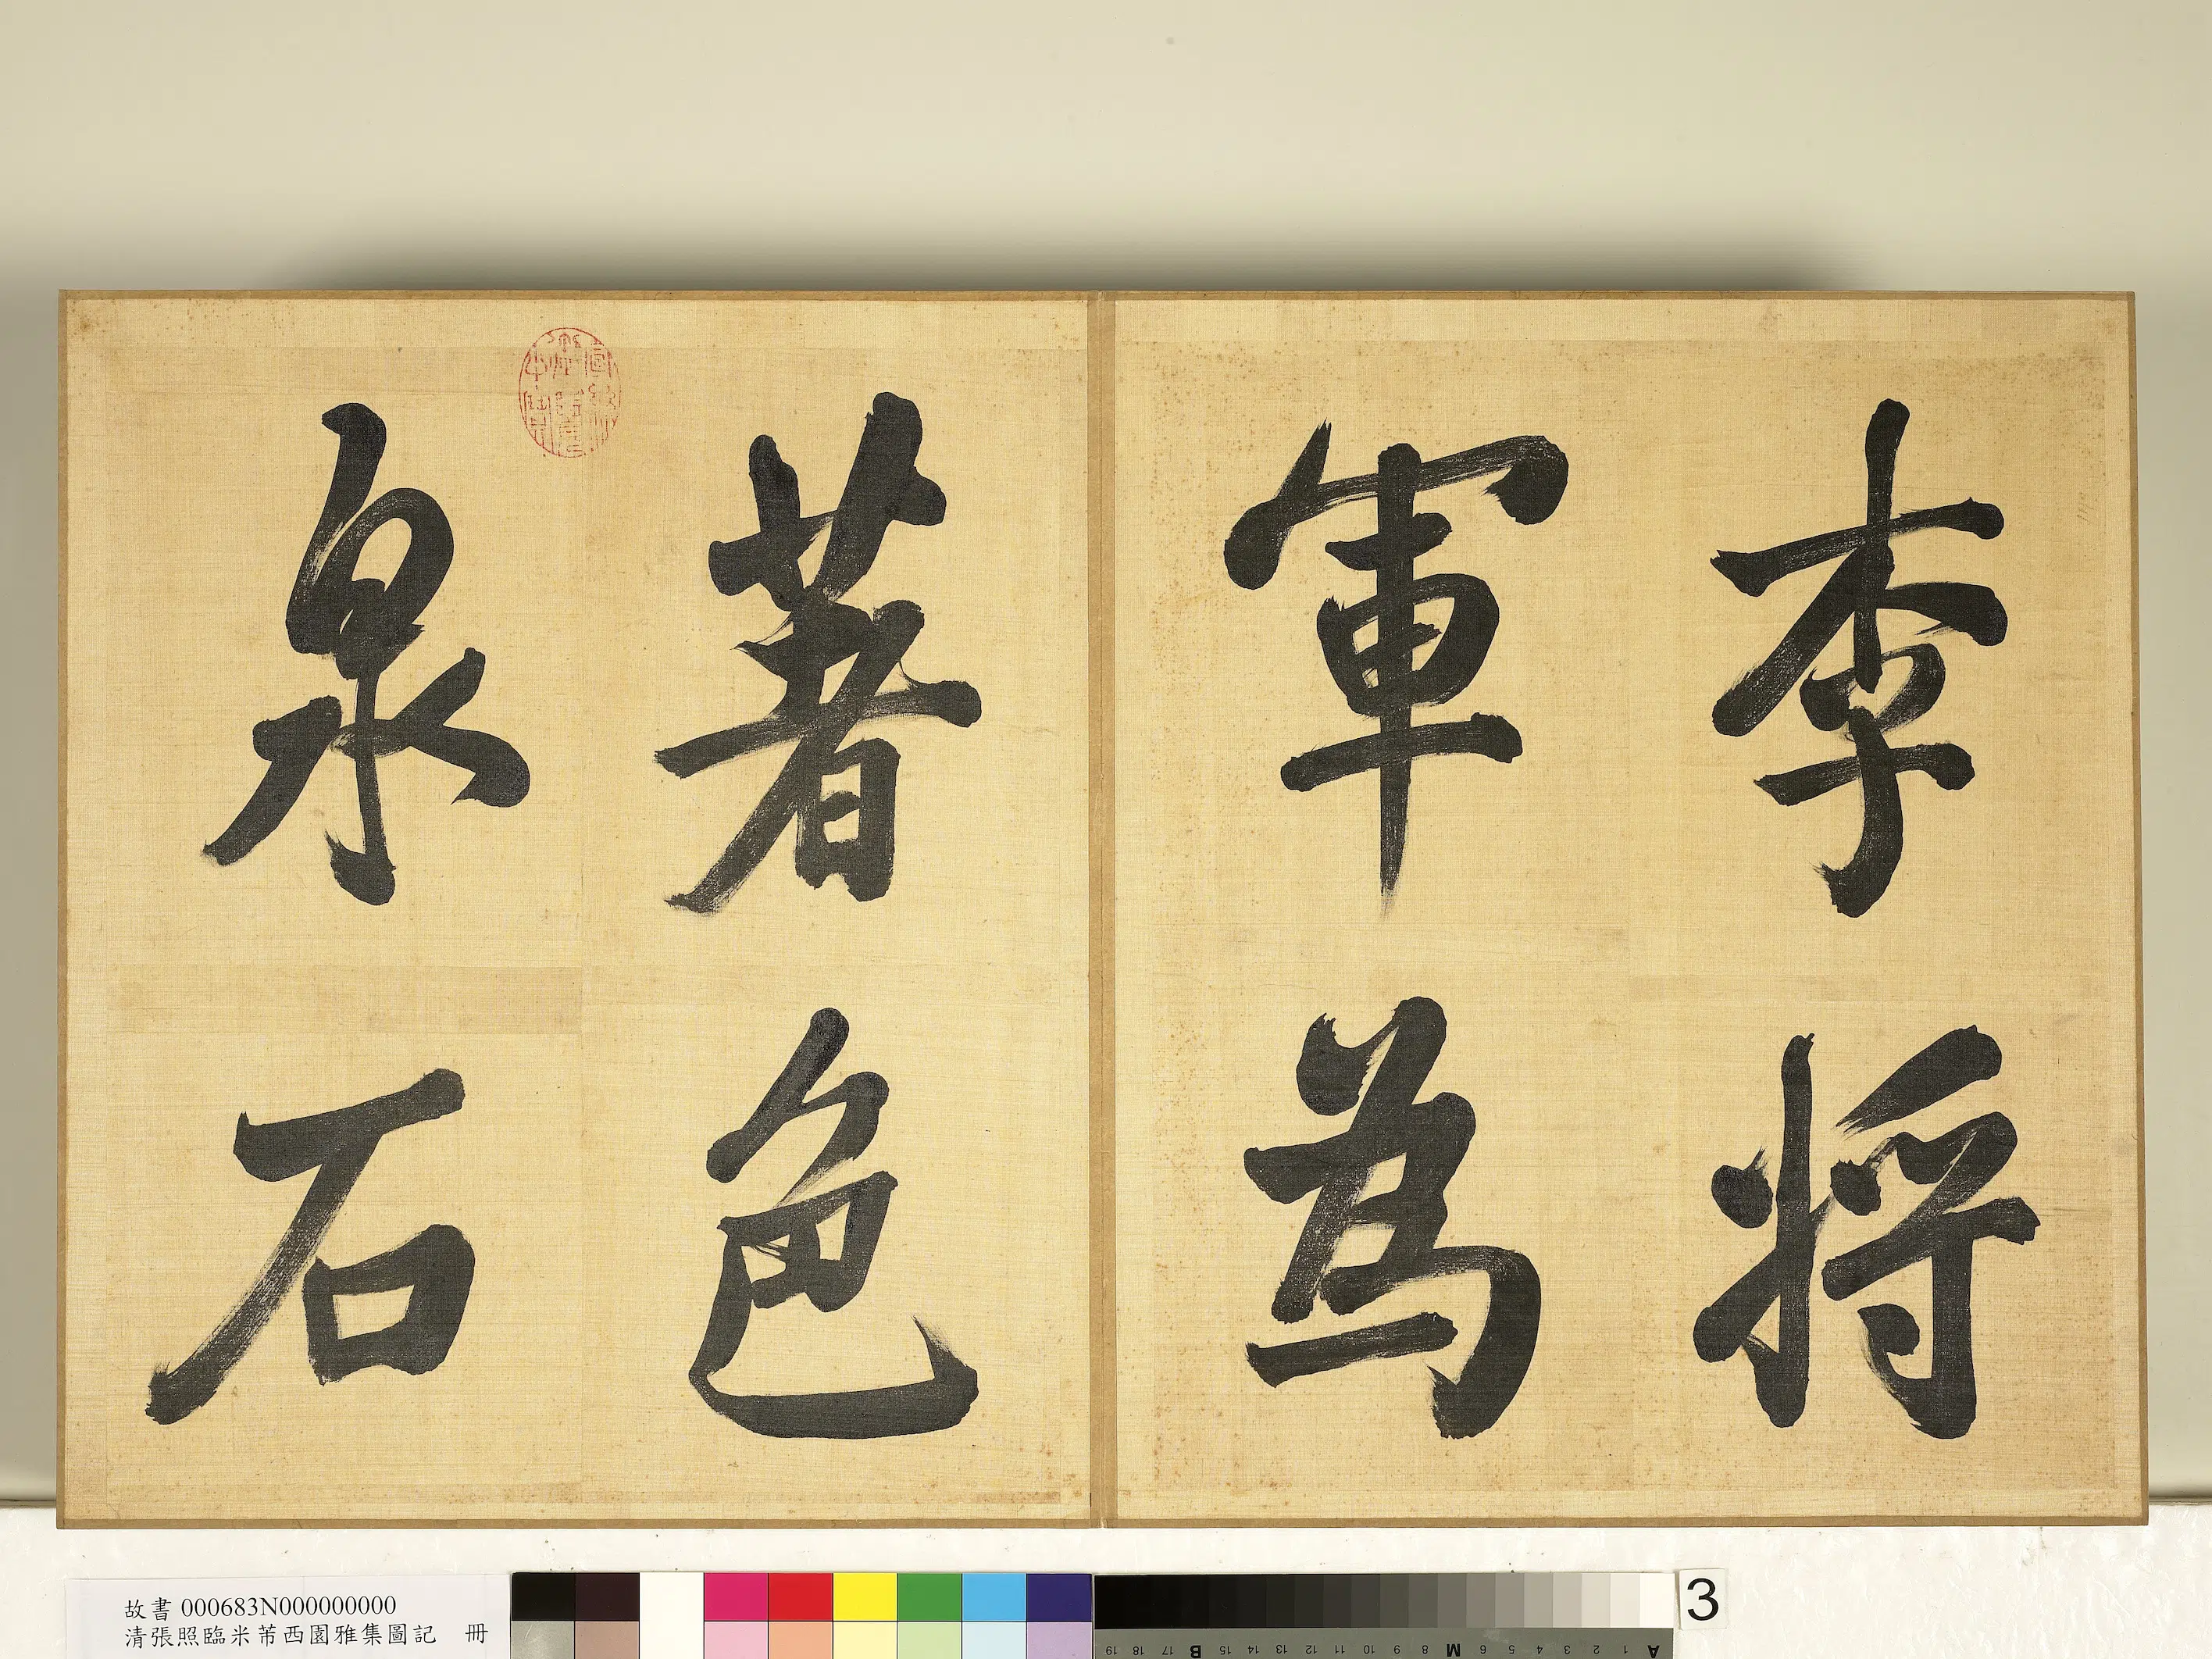 李將
軍為
著色
泉石
故書 000683N000000000
清張照臨米芾西園雅集圖記 冊
3
19 18 17 B 15 14 13 12 11 10 9 8 M 6 5 4 3 2 1 A